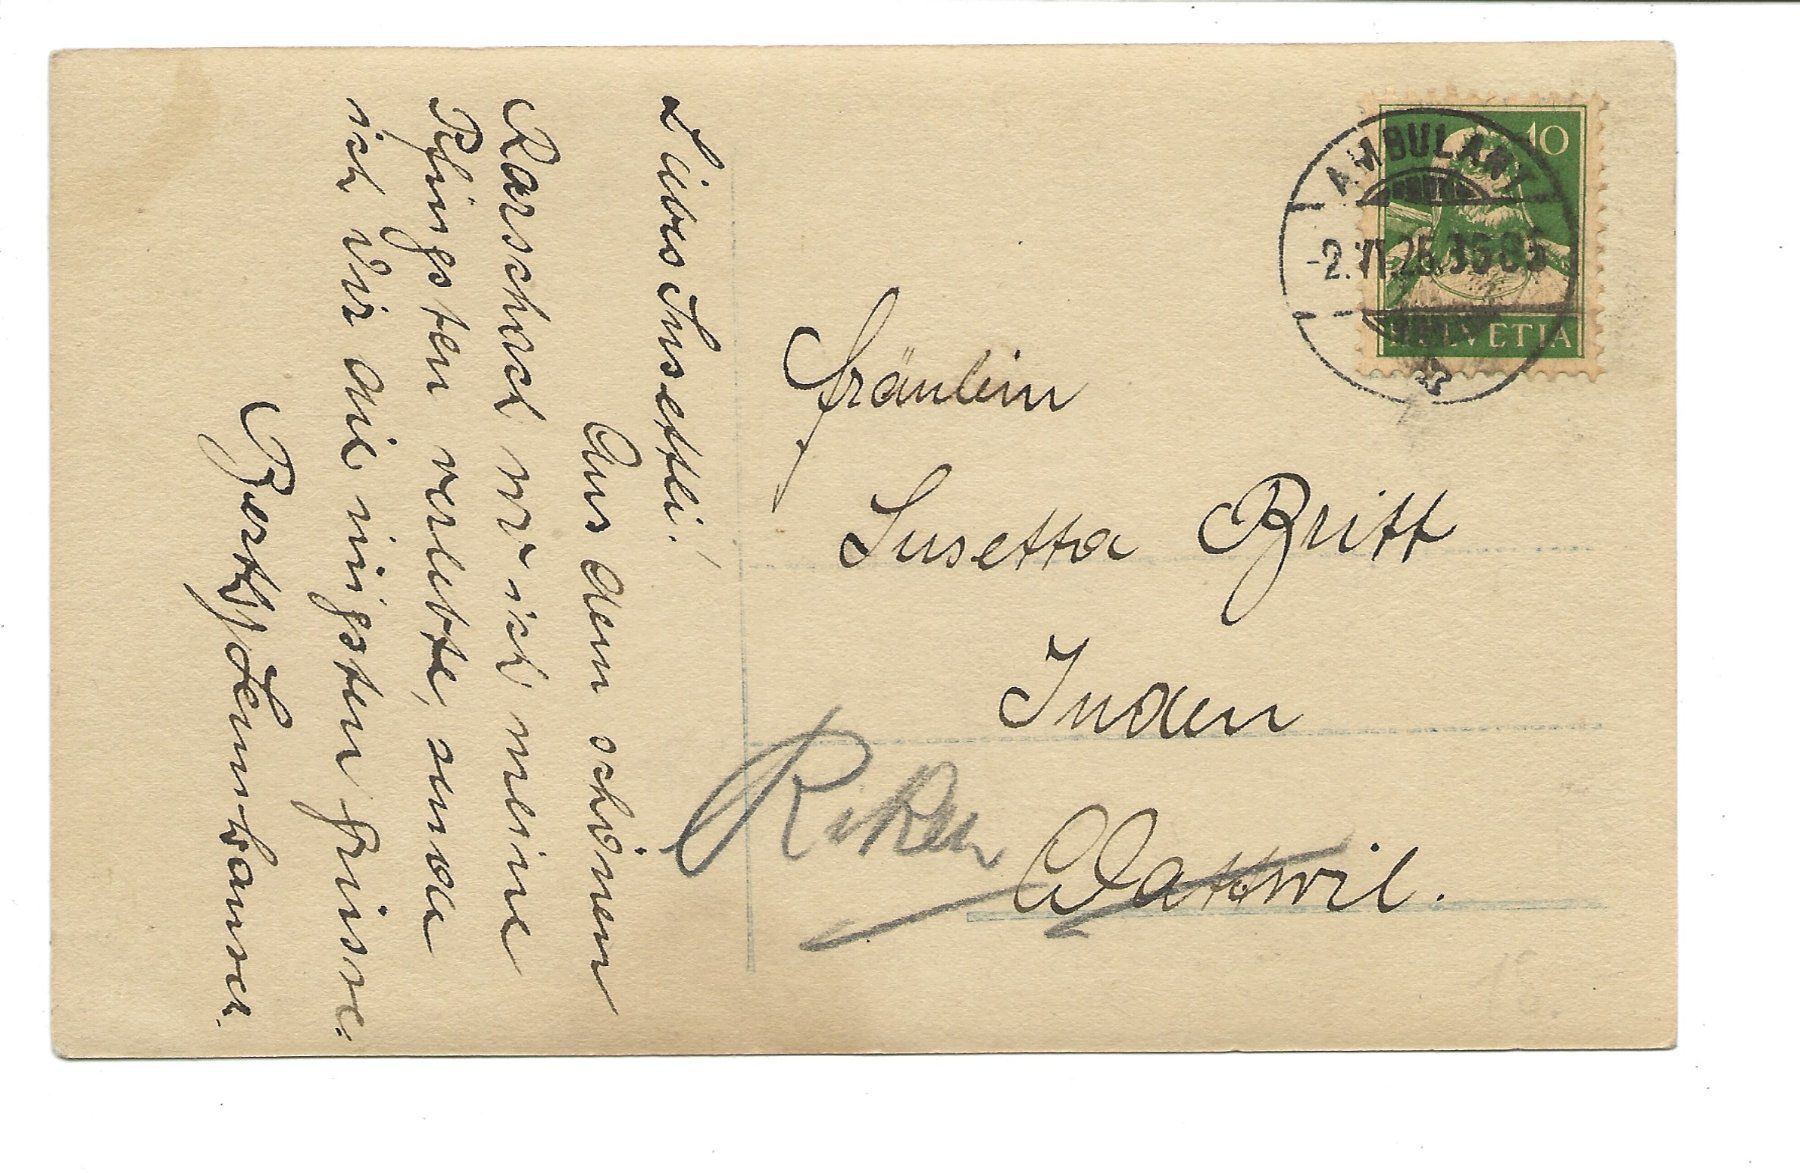 Liebes Susettli!
Aus dem schönen
Rorschach wo ich meine
Pfingsten verlebte, sende
ich Dir die innigsten Grüsse.
Berthy
Fräulein
Susetta Britt
Wattwil.
Riken
AMBULANT
-2.VI.25.
10
HELVETIA
18.